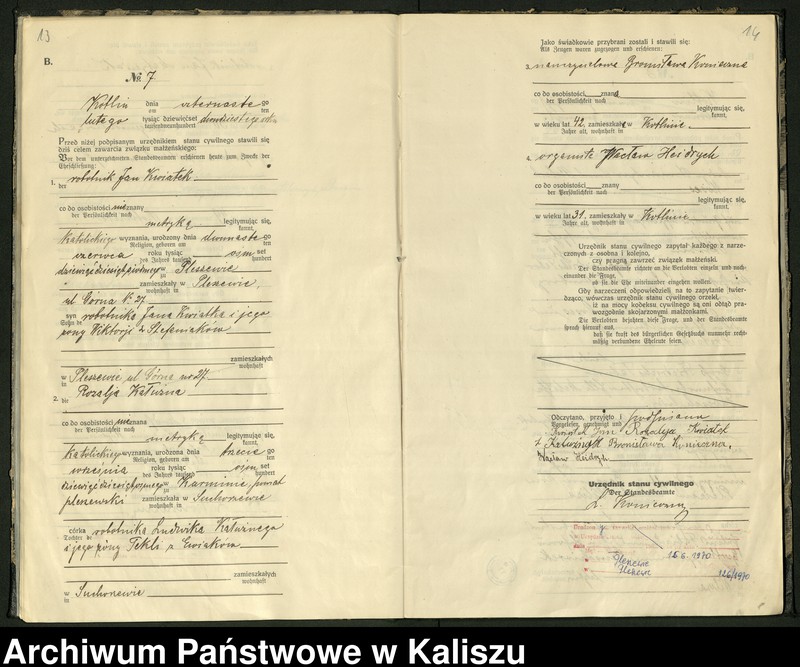 13
B.
№ 7
Kotlin dnia czternastego
am ten
lutego tysiąc dziewięćset
tausendneunhundert
Przed niżej podpisanym urzędnikiem stanu cywilnego stawili się
dziś celem zawarcia związku małżeńskiego:
Vor dem unterzeichneten Standesbeamten erschienen heute zum Zwecke der
Eheschließung:
1. robotnik Jan Kwiatek
der
co do osobistości nieznany
der Persönlichkeit nach
metryką legitymując się,
kannt,
katolickiego wyznania, urodzony dnia dwunastego
Religion, geboren am ten
czerwca roku tysiąc osm set
des Jahres tausend hundert
w Pleszewie
zu
zamieszkały w Pleszewie,
wohnhaft in
ul Górna № 27
syn robotnika Jana Kwiatka i jego
Sohn de
żony Wiktorji z Stefaniaków
zamieszkałych
wohnhaft
w Pleszewie ul Górna no 27.
in
2. Rozalja Kałużna
die
co do osobistości nieznana
der Persönlichkeit nach
metryką legitymując się,
kannt,
katolickiego wyznania, urodzona dnia trzeciego
Religion, geboren am ten
września roku tysiąc osm set
des Jahres tausend hundert
w Karminie, powiat
zu
pleszewski zamieszkała w Suchorzewie
wohnhaft in
córka robotnika Ludwika Kałużnego
Tochter de
i jego żony Tekli z Ćwiaków
zamieszkałych
wohnhaft
w Suchorzewie
in
14
Jako świadkowie przybrani zostali i stawili się:
Als Zeugen waren zugezogen und erschienen:
Bronisława Konieczna
co do osobistości znana
der Persönlichkeit nach
legitymując się,
kannt,
w wieku lat 42, zamieszkała w Kotlinie.
Jahre alt, wohnhaft in
2. organista Wacław Heidrych
co do osobistości znany
der Persönlichkeit nach
legitymując się,
kannt,
w wieku lat 31. zamieszkały w Kotlinie
Jahre alt, wohnhaft in
Urzędnik stanu cywilnego zapytał każdego z narze-
czonych z osobna i kolejno,
czy pragną zawrzeć związek małżeński.
Der Standesbeamte richtete an die Verlobten einzeln und nach-
einander die Frage,
ob sie die Ehe miteinander eingehen wollen.
Gdy narzeczeni odpowiedzieli na to zapytanie twier-
dząco, wówczas urzędnik stanu cywilnego orzekł,
iż na mocy kodeksu cywilnego są oni odtąd pra-
wozgodnie skojarzonymi małżonkami.
Die Verlobten bejahten diese Frage, und der Standesbeamte
sprach hierauf aus,
daß sie kraft des bürgerlichen Gesetzbuchs nunmehr recht-
mäßig verbundene Eheleute seien.
Odczytano, przyjęto i podpisano
Vorgelesen, genehmigt und
Kwiatek Jan Rozalja Kwiatek
z Kałużnych Bronisława Konieczna,
Wacław Heidrych.
Urzędnik stanu cywilnego
Der Standesbeamte
L. Konieczny
15.6. 1970
126/1970
Archiwum Państwowe w Kaliszu